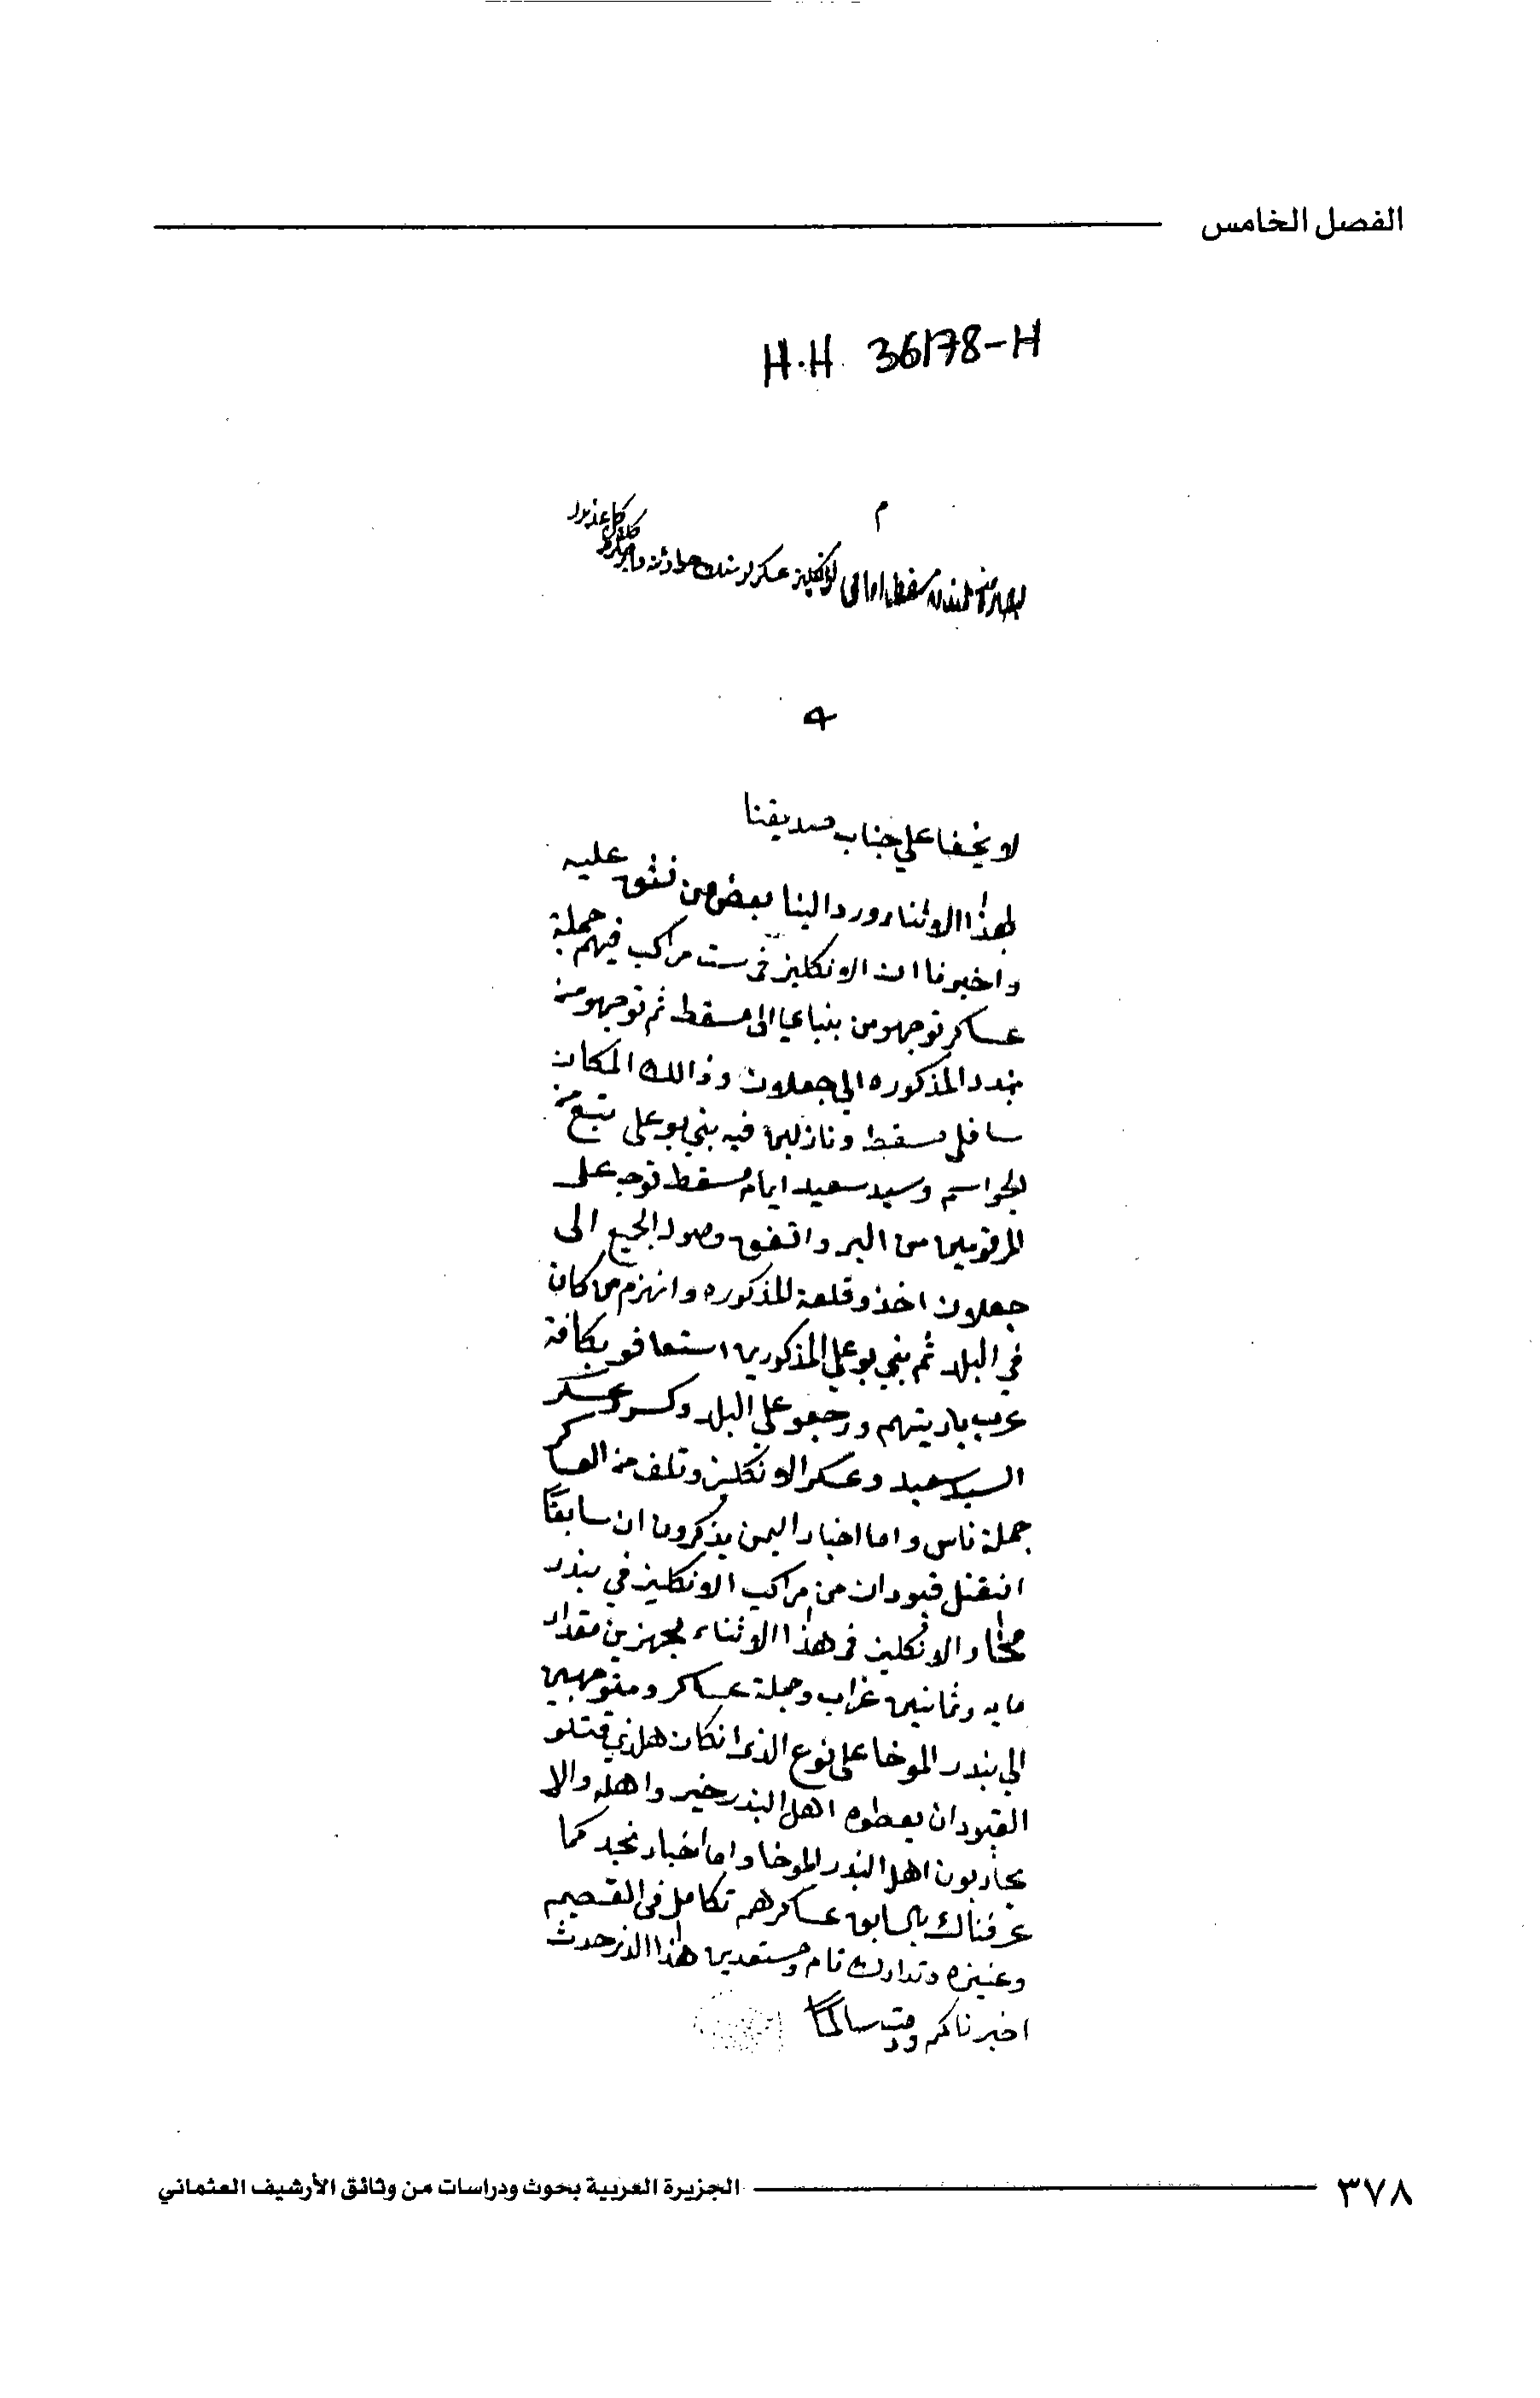 الفصل الخامس
H.H 36178-H
م
مسقط امامى عسكر
لا يخفا علي جناب صديقنا
بهذا الاثناء ورد الينا بعض من نثق عليه
واخبرنا ان الانكليز في ست مراكب فيهم جملة
عساكر توجهو من بنباي الى مسقط ثم توجهو من
بندر المذكوره الي جعلان وذالك المكان
سافل مسقط ونازلين فيه بني بو علي تبع
الجواسم وسيد سعيد امام مسقط توجه على
المرقومين من البر واتفق وصول الجميع الى
جعلان اخذو قلعة المذكوره وانهزم من كان
في البلد ثم بني بو علي المذكورين استعانو بكافة
عرب باديتهم ورجعو على البلد وكسرو عسكر
السيد سعيد وعسكر الانكليز وتلف من العساكر
جملة ناس واما اخبار اليمن يذكرون ان سابقًا
انقتل قبودان من مراكب الانكليز في بندر
مخا والانكليز في هذا الاثناء مجهزين مقدار
مايه وثمانين غراب وجملة عساكر ومتوجهين
الي بندر الموخا على نوع الذي انكان هلذي قتلو
القبودان يعطوه اهل البندر خير واهله والا
يحاربون اهل البندر الموخا واما اخبار نجد كما
عرفناك بالسابق عساكرهم تكامل في القصيم
وعنيزه وتدارك تام ومستعدين هذا الذي حدث
اخبرناكم ودمت سالمًا
٣٧٨ الجزيرة العربية بحوث ودراسات من وثائق الأرشيف العثماني